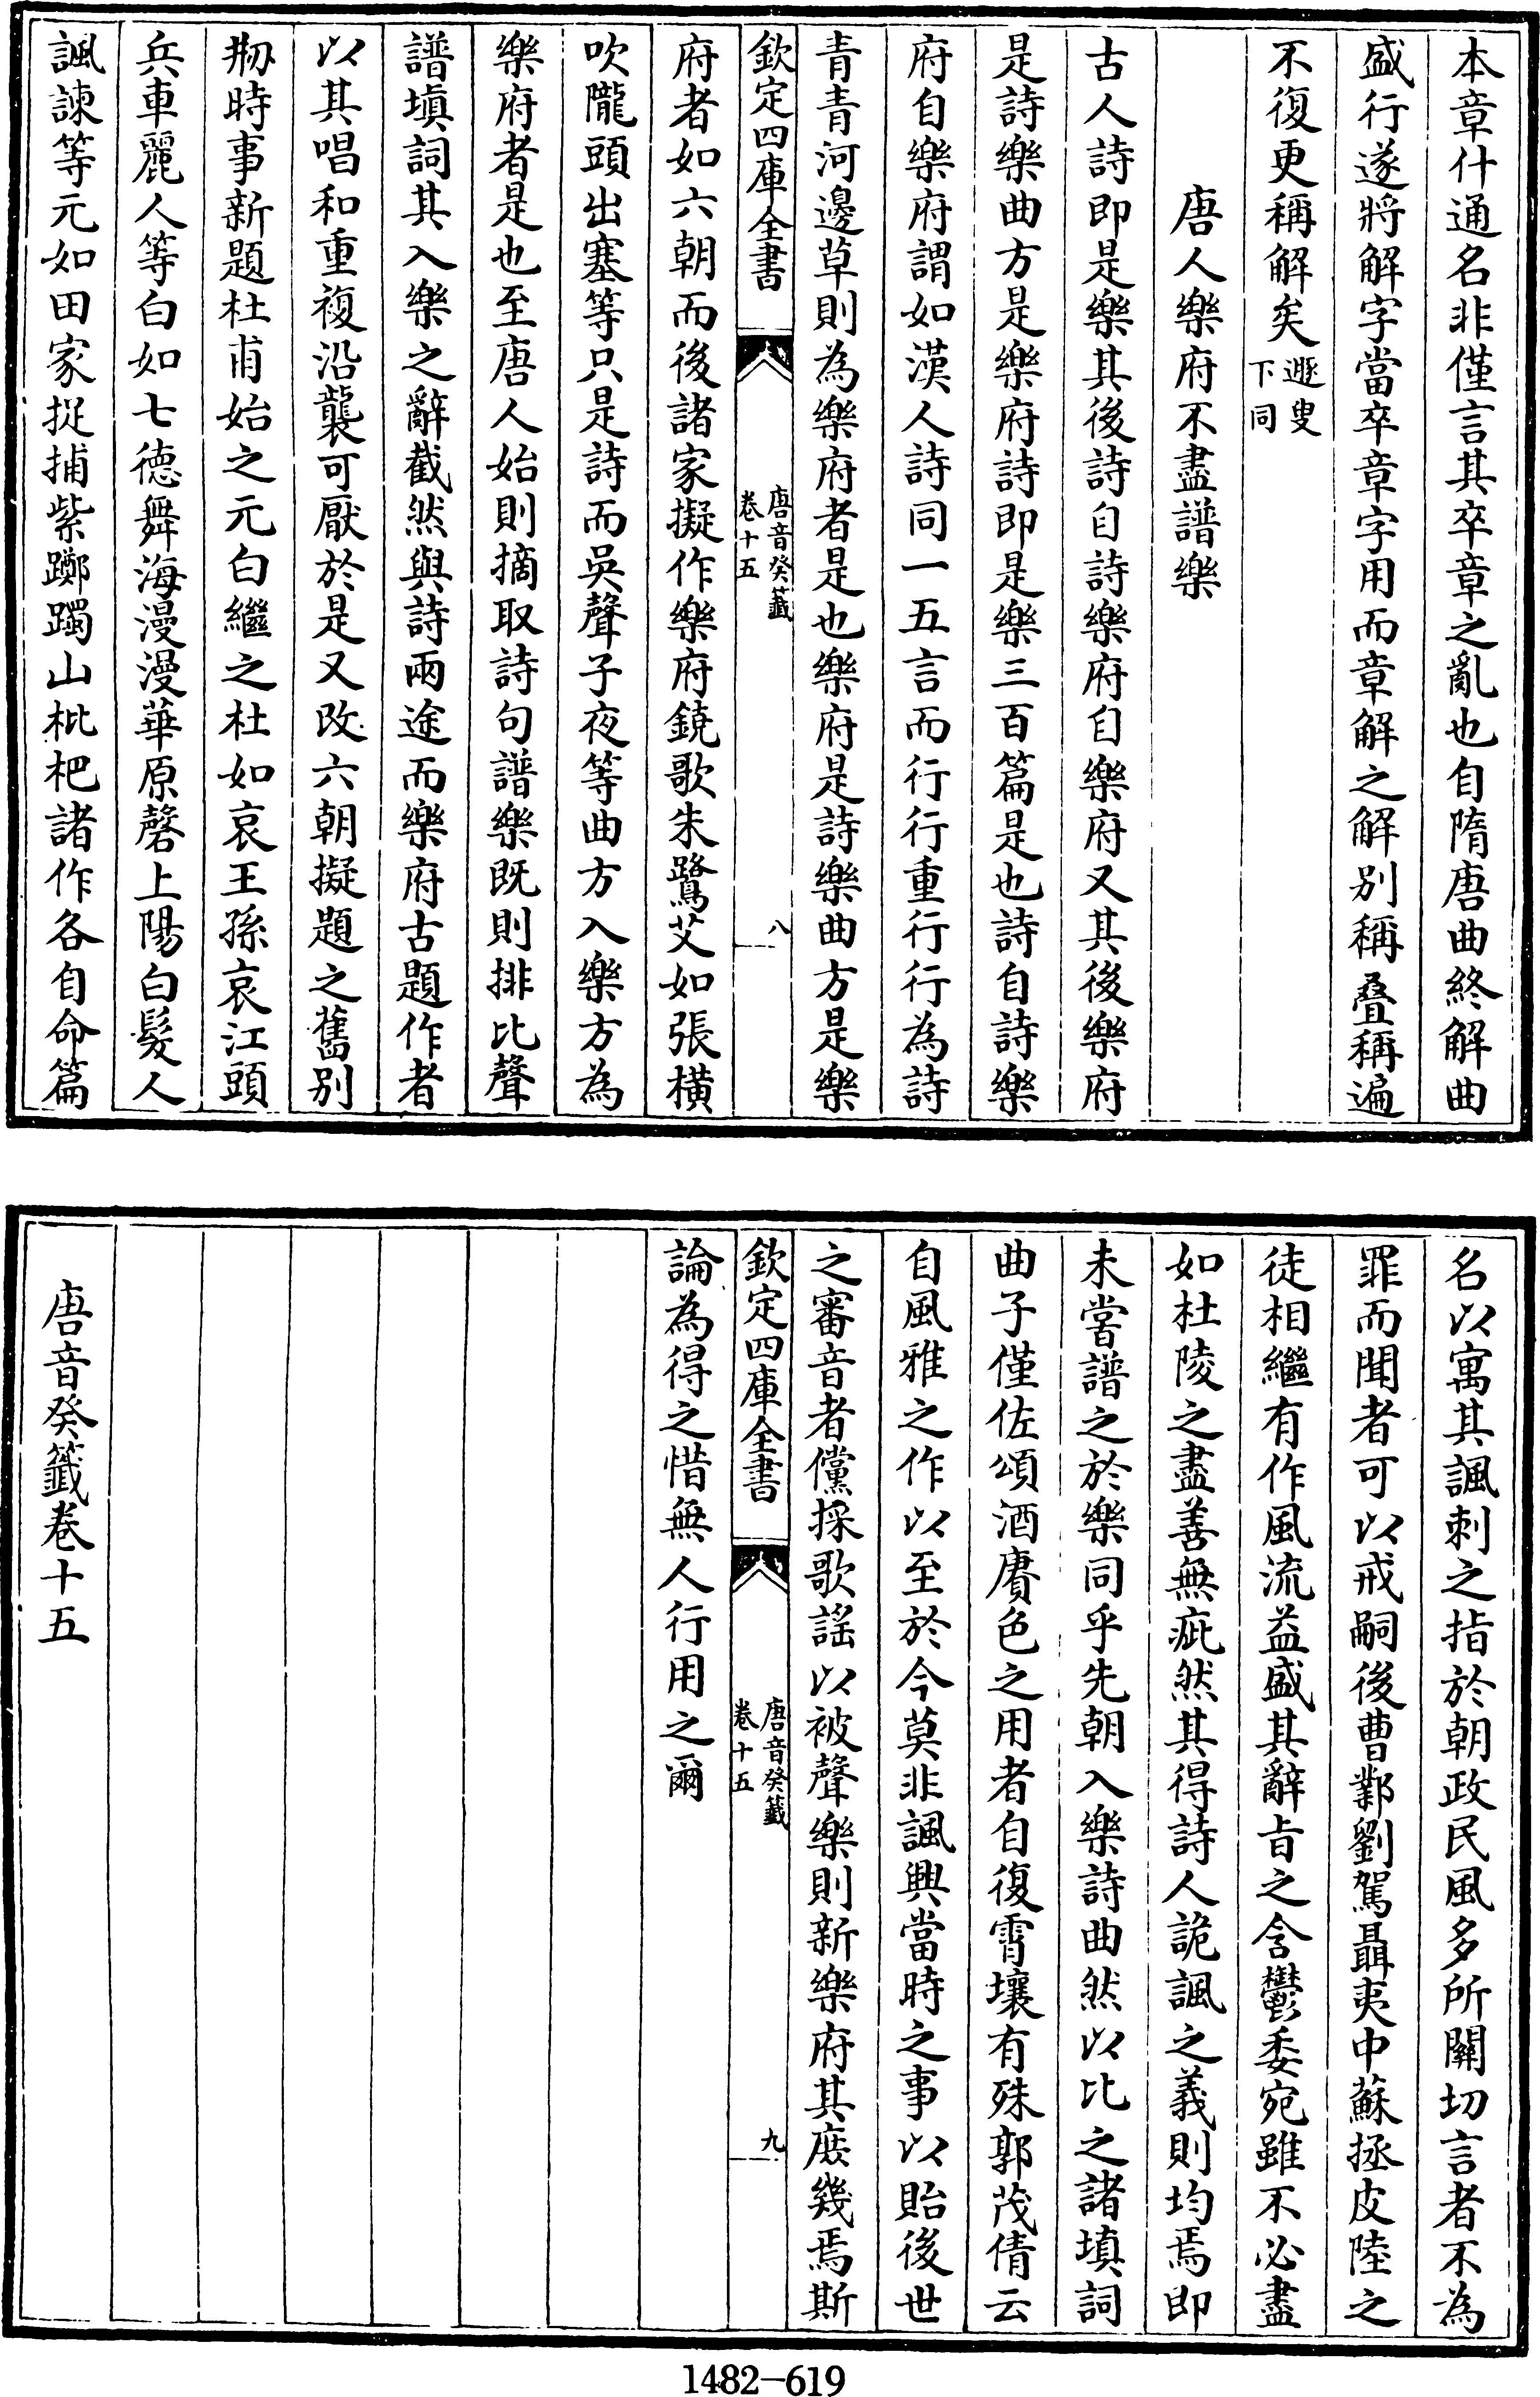 本章什通名非僅言其卒章之亂也自隋唐曲終解曲
盛行遂將解字當卒章字用而章解之解別稱疊稱遍
不復更稱解矣遯叟下同
唐人樂府不盡譜樂
古人詩即是樂其後詩自詩樂府自樂府又其後樂府
是詩樂曲方是樂府詩即是樂三百篇是也詩自詩樂
府自樂府謂如漢人詩同一五言而行行重行行為詩
青青河邊草則為樂府者是也樂府是詩樂曲方是樂
欽定四庫全書
唐音癸籤
卷十五
八
府者如六朝而後諸家擬作樂府鐃歌朱鷺艾如張橫
吹隴頭出塞等只是詩而吳聲子夜等曲方入樂方為
樂府者是也至唐人始則摘取詩句譜樂既則排比聲
譜填詞其入樂之辭截然與詩兩途而樂府古題作者
以其唱和重複沿襲可厭於是又改六朝擬題之舊別
剏時事新題杜甫始之元白繼之杜如哀王孫哀江頭
兵車麗人等白如七德舞海漫漫華原磬上陽白髮人
諷諫等元如田家捉捕紫躑躅山枇杷諸作各自命篇
名以寓其諷刺之指於朝政民風多所關切言者不為
罪而聞者可以戒嗣後曹鄴劉駕聶夷中蘇拯皮陸之
徒相繼有作風流益盛其辭旨之含鬱委宛雖不必盡
如杜陵之盡善無疵然其得詩人詭諷之義則均焉即
未嘗譜之於樂同乎先朝入樂詩曲然以比之諸填詞
曲子僅佐頌酒賡色之用者自復霄壤有殊郭茂倩云
自風雅之作以至於今莫非諷興當時之事以貽後世
之審音者儻採歌謠以被聲樂則新樂府其庶幾焉斯
欽定四庫全書
唐音癸籤
卷十五
九
論為得之惜無人行用之爾
唐音癸籤卷十五
1482-619